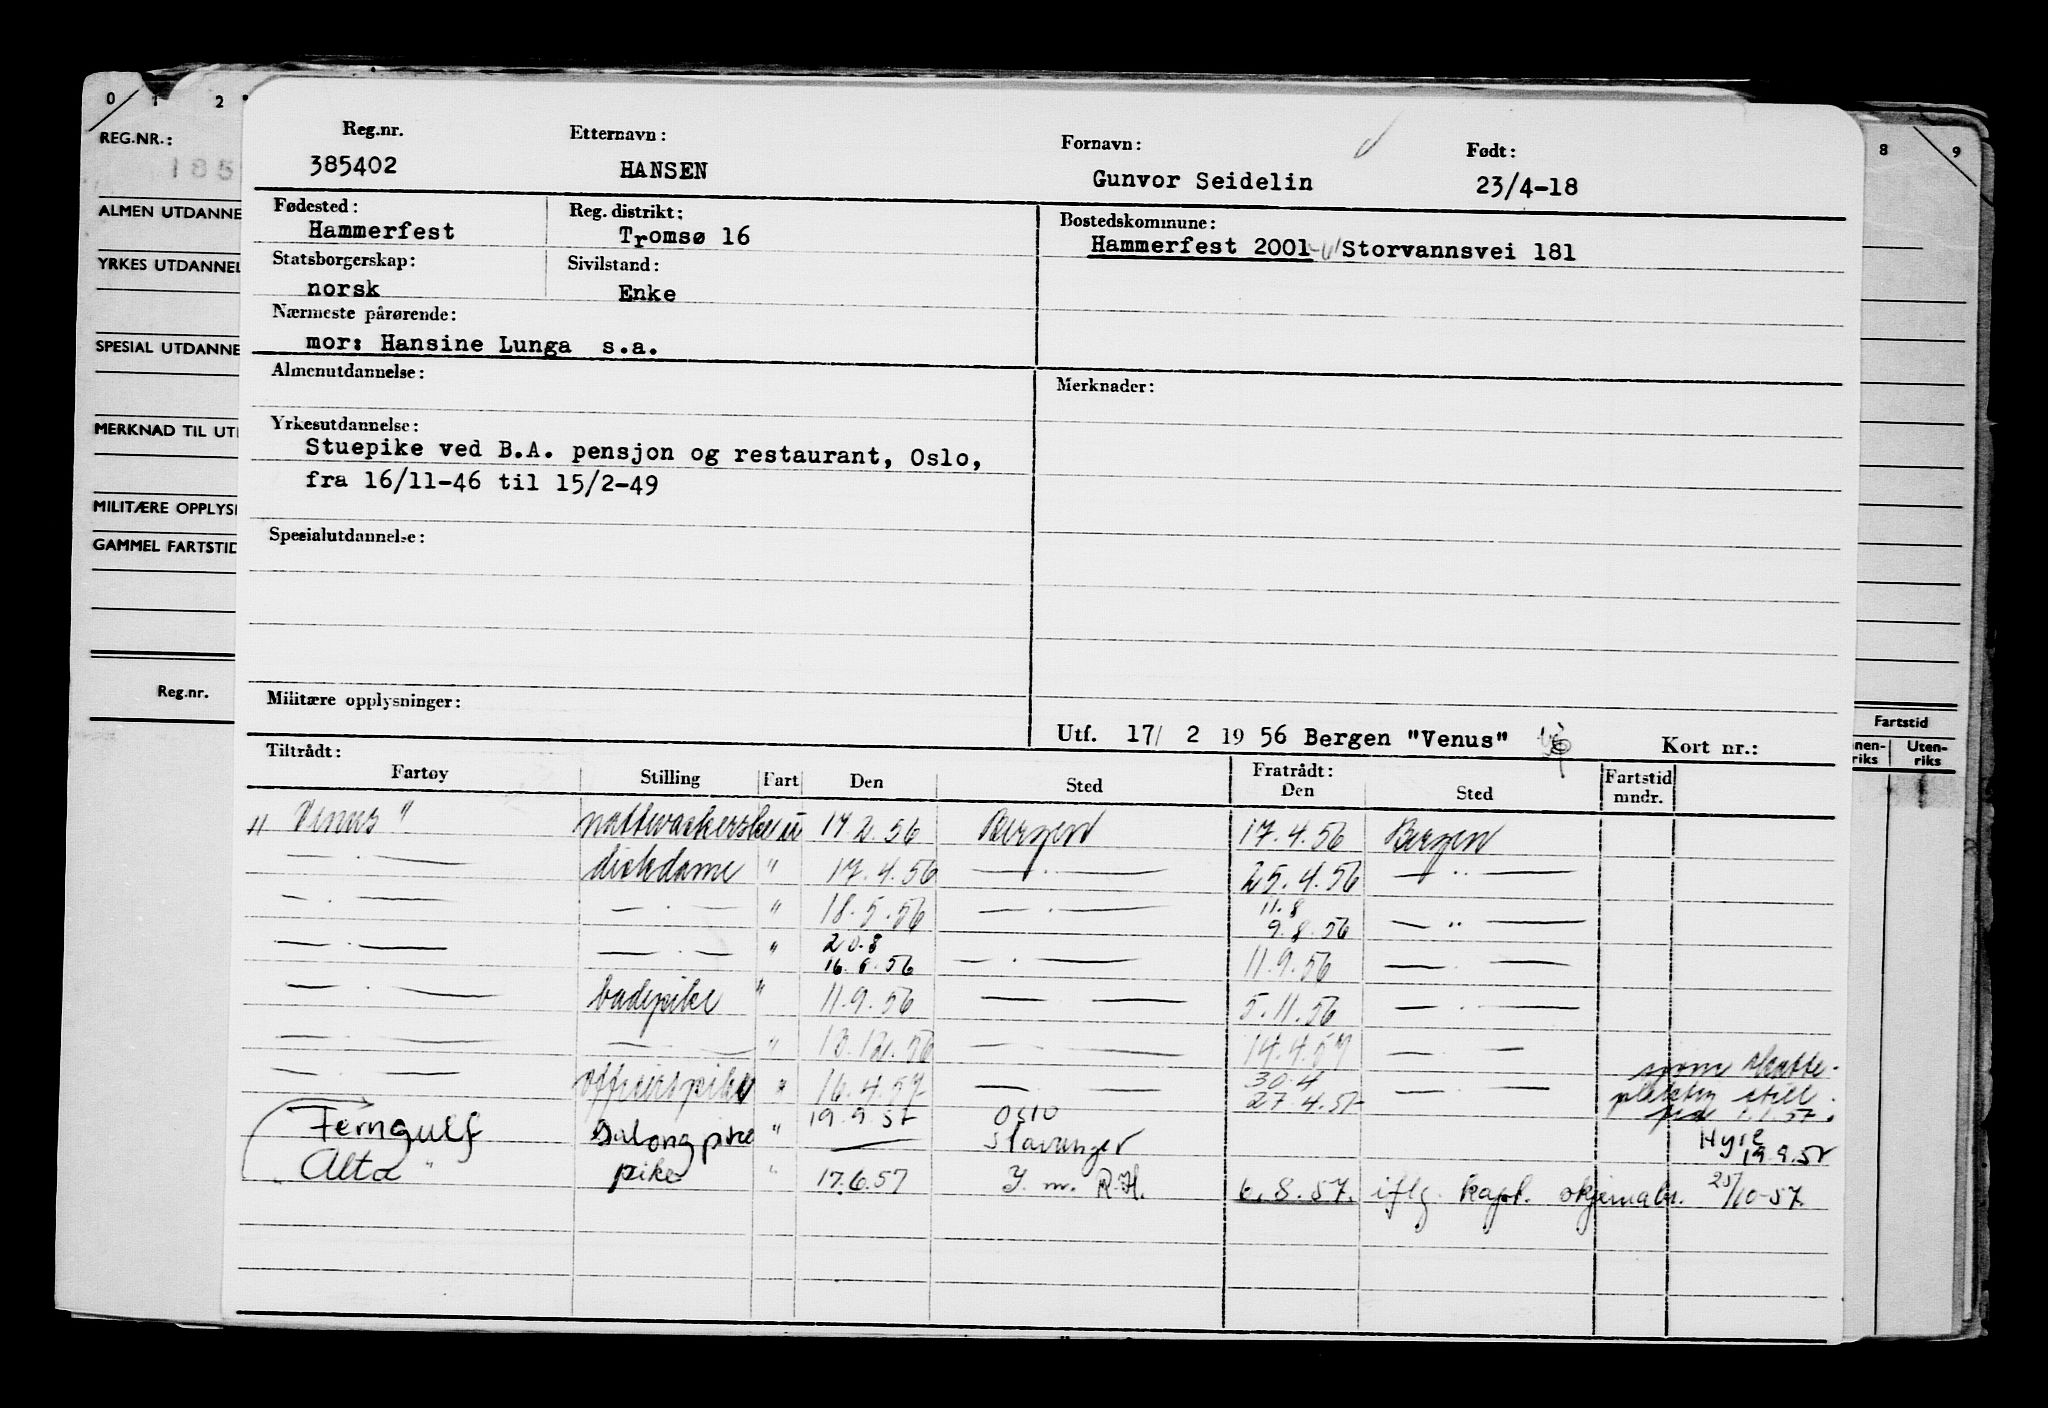 0 1 2 8 9
REG.NR.:
185
ALMEN UTDANNE
YRKES UTDANNEL
SPESIAL UTDANNE
MERKNAD TIL UT
MILITÆRE OPPLYS
GAMMEL FARTSTID
Reg.nr.
Fartstid
nen-riks Uten-riks
Reg.nr. Etternavn: Fornavn: Født:
385402 HANSEN Gunvor Seidelin 23/4-18
Fødested: Reg. distrikt: Bostedskommune:
Hammerfest Tromsø 16 Hammerfest 2001 Storvannsvei 181
Statsborgerskap: Sivilstand:
norsk Enke
Nærmeste pårørende:
mor: Hansine Lunga s.a.
Almenutdannelse: Merknader:
Yrkesutdannelse:
Stuepike ved B.A. pensjon og restaurant, Oslo,
fra 16/11-46 til 15/2-49
Spesialutdannelse:
Militære opplysninger:
Utf. 17/ 2 1956 Bergen "Venus" Kort nr.:
Tiltrådt: Fratrådt:
Fartøy Stilling Fart Den Sted Den Sted Fartstid mndr.
" Venus " nattvakerske u 17 2. 56 Bergen 17.4.56 Bergen
— . — dekkdame " 17.4.56 — . — 25.4.56 — " —
— . — — . — " 18.5.56 — . — 11.8
9.8.56 — " —
— . — — . — " 20.8
16.8.56 — . — 11.9.56 — . —
— . — badepike " 11.9.56 — — 5.11.56 — . —
— . — — . — " 13.12.56 — — 14.4.57 — . —
— . — offiserspike " 16.4.57 — — 30.4
27.4.57 — — skatte-
still
1.1.57.
Ferngulf Salongpike " 19.9.57 Oslo
— Stavanger Hyre
19.9.57
Alta " pike " 17.6.57 Y. m. R.H. 6.8.57. iflg. kapt. skjemabr. 25/10-57.